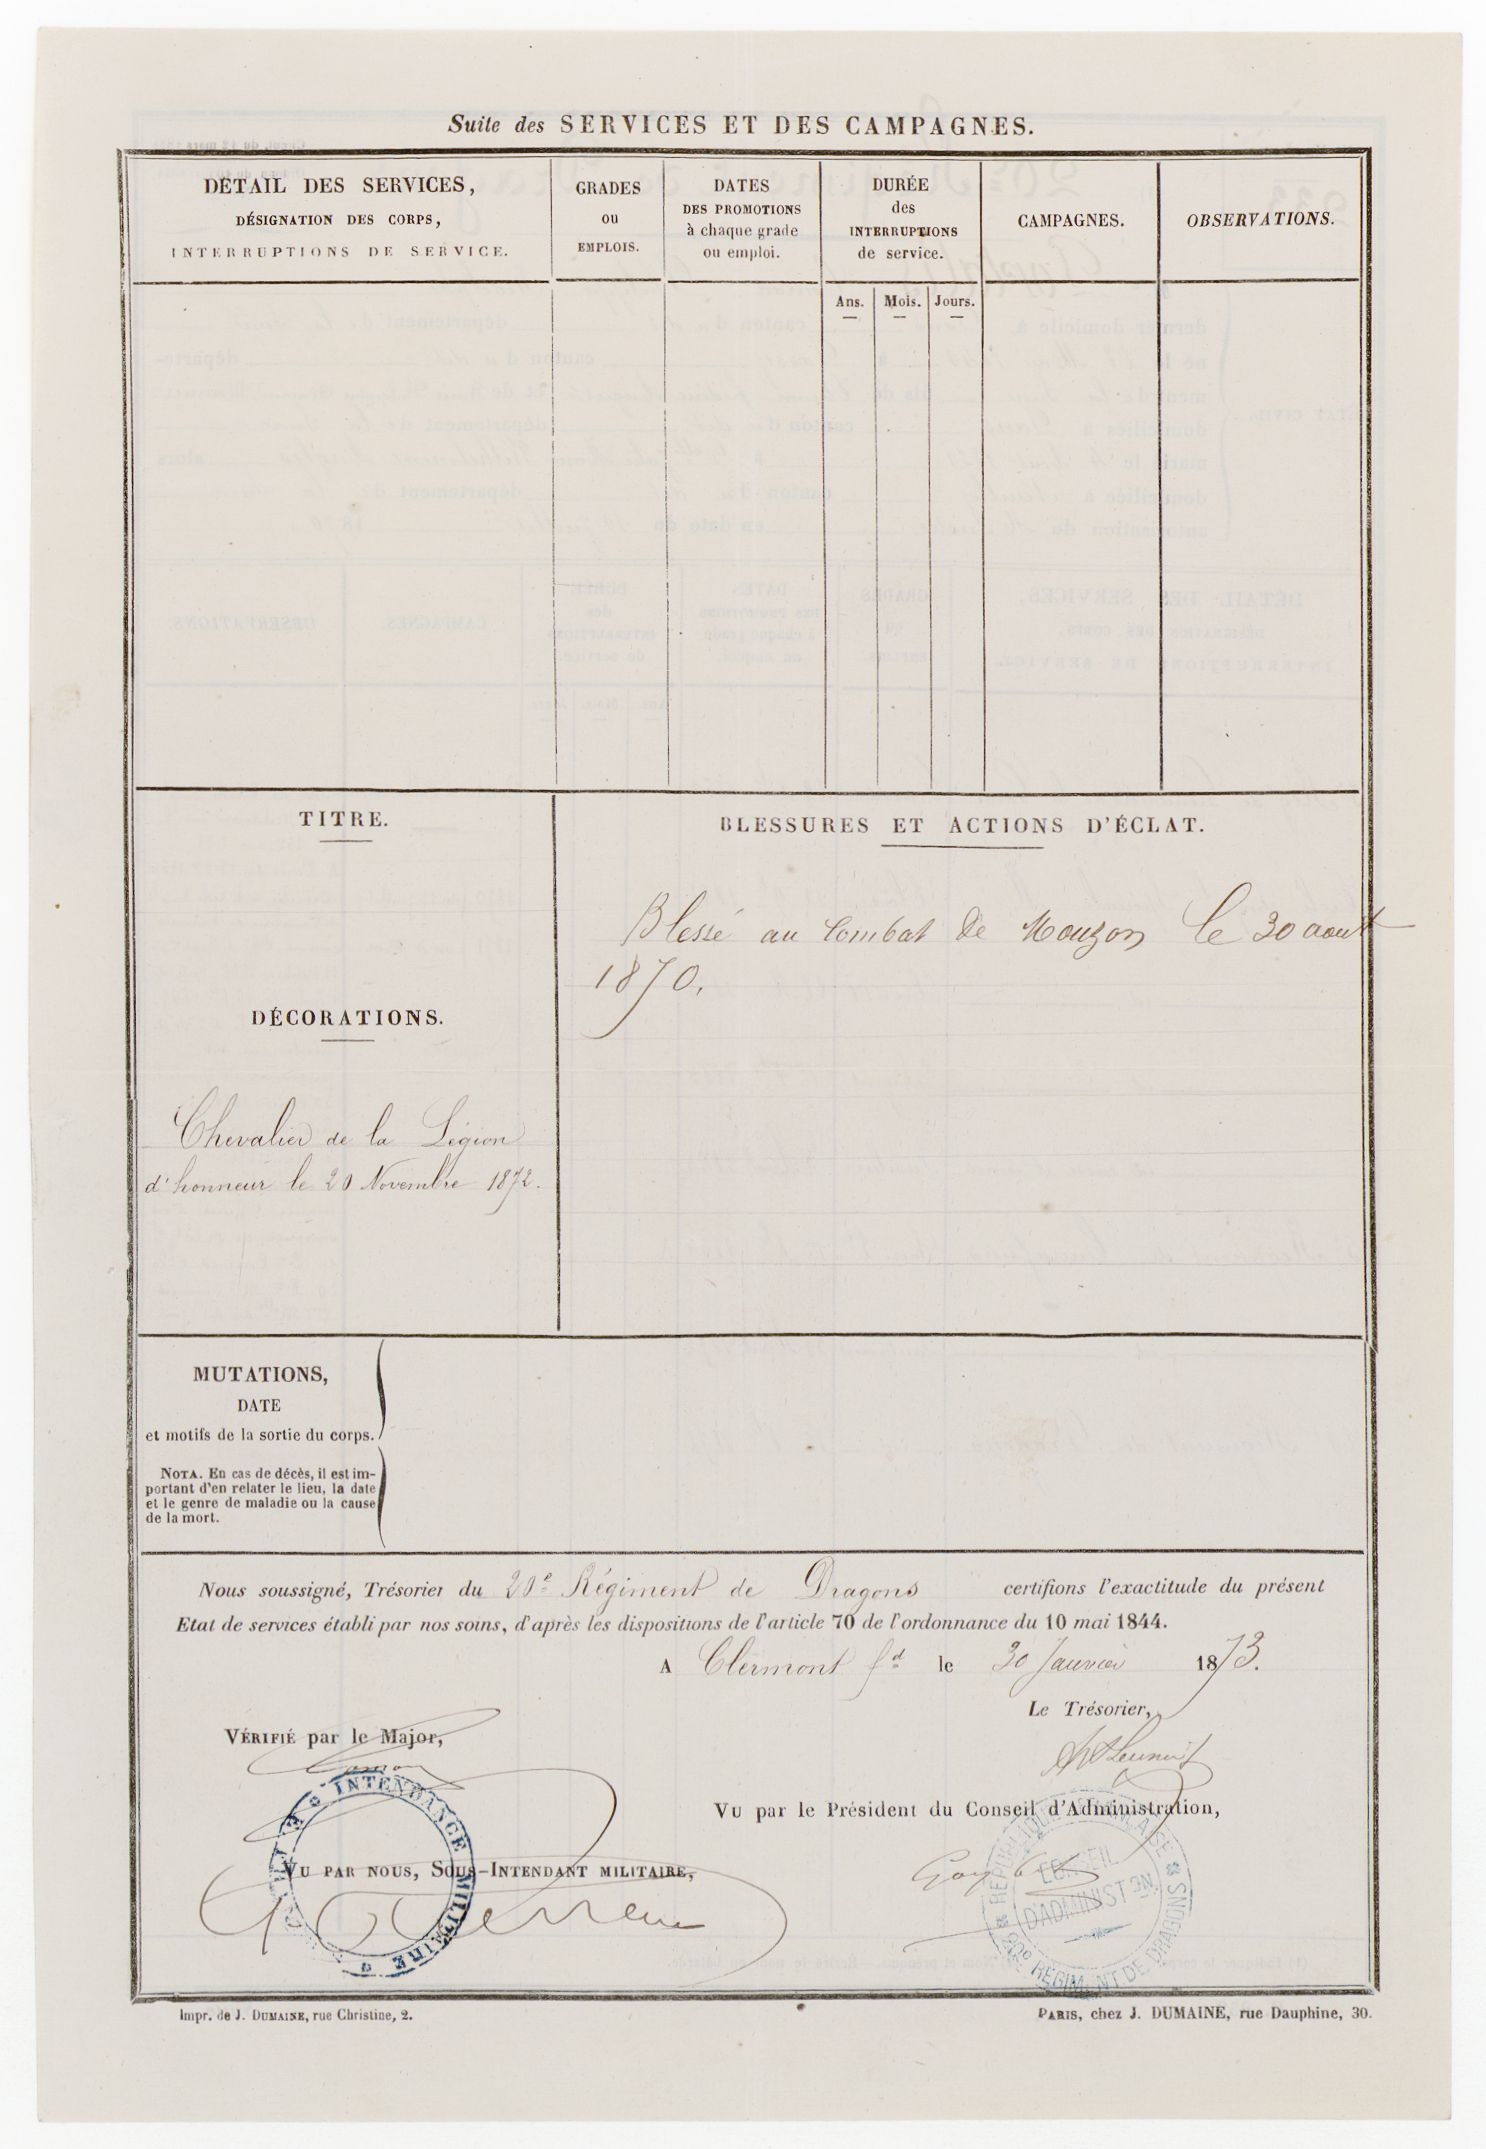 Suite des SERVICES ET DES CAMPAGNES.
DÉTAIL DES SERVICES,
DÉSIGNATION DES CORPS,
INTERRUPTIONS DE SERVICE.
GRADES
ou
EMPLOIS.
DATES
DES PROMOTIONS
à chaque grade
ou emploi.
DURÉE
des
INTERRUPTIONS
de service.
Ans. Mois. Jours.
CAMPAGNES.
OBSERVATIONS.
TITRE.
BLESSURES ET ACTIONS D'ÉCLAT.
Blessé au combat de Mouzon le 30 aout
1870.
DÉCORATIONS.
Chevalier de la Légion
d'honneur le 20 Novembre 1872.
MUTATIONS,
DATE
et motifs de la sortie du corps.
NOTA. En cas de décès, il est im-
portant d'en relater le lieu, la date
et le genre de maladie ou la cause
de la mort.
Nous soussigné, Trésorier du 20e Régiment de Dragons certifions l'exactitude du présent
Etat de services établi par nos soins, d'après les dispositions de l'article 70 de l'ordonnance du 10 mai 1844.
A Clermont fd le 30 Janvier 1873.
Le Trésorier,
VÉRIFIÉ par le Major,
INTENDANCE MILITAIRE
VU par le Président du Conseil d'Administration,
VU PAR NOUS, SOUS-INTENDANT MILITAIRE,
RÉPUBLIQUE FRANÇAISE
CONSEIL
D'ADMINISTON
20e RÉGIMENT DE DRAGONS
Impr. de J. DUMAINE, rue Christine, 2.
PARIS, chez J. DUMAINE, rue Dauphine, 30.